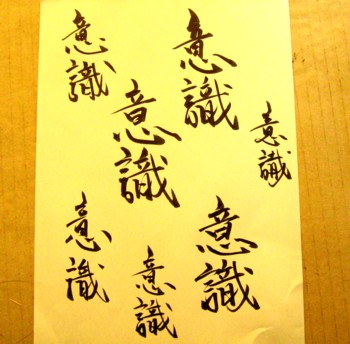 意識
意識
意識
意識
意識
意識
意識